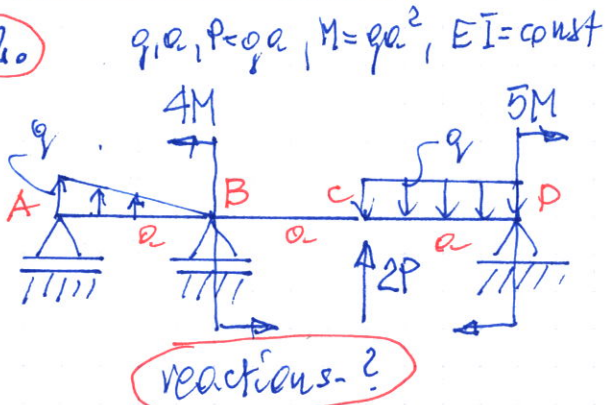 q, a, P=qa, M=qa², EI=const
4M
5M
q
q
A
B
C
D
a
a
a
2P
reactions-?